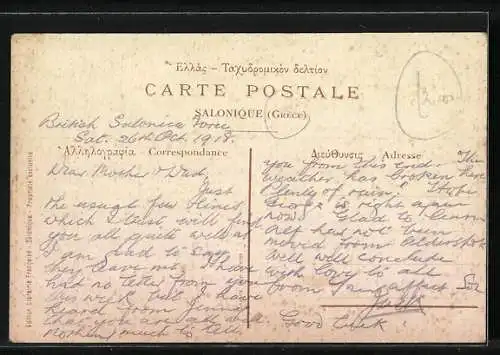 Ἑλλάς – Ταχυδρομικὸν δελτίον
CARTE POSTALE
SALONIQUE (Grèce)
British Salonica Force
Sat. 26th Oct. 1918.
Ἀλληλογραφία - Correspondance
Dear Mother & Dad,
Just
the usual few lines
which I trust will find
you all quite well as
I am glad to say
they leave me. I have
had no letter from you
this week but I have
heard from
that you are
nothing much to tell
Διεύθυνσις - Adresse
you from this end. The
weather has broken here
Plenty of rain. Hope
George is right again
now. Glad to
Alf has not been
moved from Aldershot
Well will conclude
with love to all
from
Jack
Good Luck
Edition Librairie Française - Salonique - Propriété exclusive